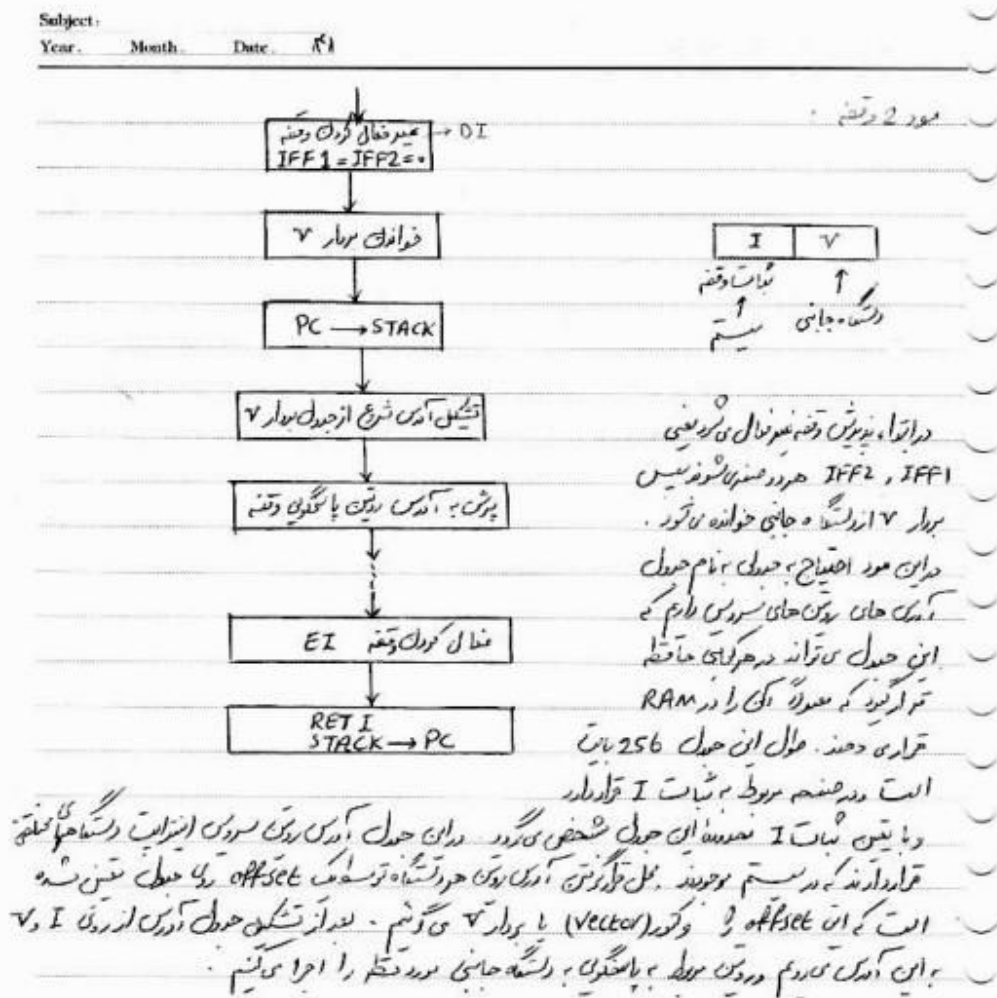 Subject:
Year. Month. Date. ۴۱
مود 2 وقفه :
غیر فعال کردن وقفه → DI
IFF1 = IFF2 = ۰
خواندن بردار V
I V
ثبات وقفه ↑
↑ دستگاه جانبی
سیستم
PC → STACK
تشکیل آدرس شروع از جدول بردار V
پرش به آدرس روتین پاسخگویی وقفه
فعال کردن وقفه EI
RETI
STACK → PC
در ابتدا، پذیرش وقفه غیر فعال می شود یعنی
IFF1 و IFF2 هر دو صفر می شوند سپس
بردار V از دستگاه جانبی خوانده می شود .
در این مود احتیاج به جدولی به نام جدول
آدرس های روتین های سرویس داریم که
این جدول می تواند در هر کجای حافظه
قرار گیرد که معمولاً آن را در RAM
قرار می دهند . طول این جدول 256 بایت
است و در صفحه مربوط به ثبات I قرار دارد
و با تعیین ثبات I محدوده این جدول مشخص می گردد . در این جدول آدرس روتین سرویس اینتراپت دستگاههای مختلفی
قرار دارند که در سیستم موجودند . محل قرار گرفتن آدرس روتین هر دستگاه توسط یک offset روی جدول تعیین شده
است که این offset را وکتور (vector) یا بردار V می گوئیم . بعد از تشکیل جدول آدرس از روی I و V
به این آدرس می رویم و روتین مربوط به پاسخگویی به دستگاه جانبی مورد نظر را اجرا می کنیم .